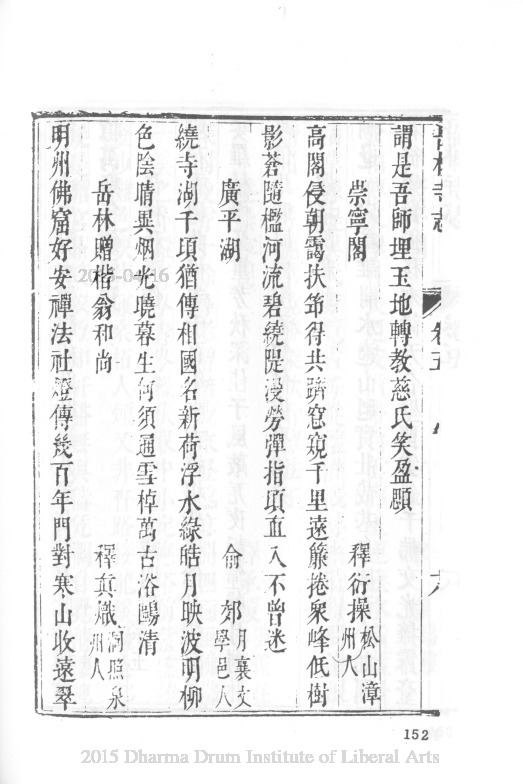 岳林寺志 卷五
謂是吾師埋玉地轉教慈氏笑盈顋
崇寧閣 釋衍操 松山漳州人
高閣侵朝靄扶筇得共躋窓窺千里遠簾捲衆峰低樹
影蒼隨檻河流碧繞隄漫勞彈指頃直入不曾迷
廣平湖 俞郊 月襄文學邑人
繞寺湖千項猶傳相國名新荷浮水綠皓月映波明柳
色陰晴異烟光曉暮生何須通雪棹萬古浴鷗清
岳林贈楷翁和尚 釋真熾 洞照泉州人
明州佛窟好安禪法社燈傳幾百年門對寒山收遠翠
152
2015 Dharma Drum Institute of Liberal Arts